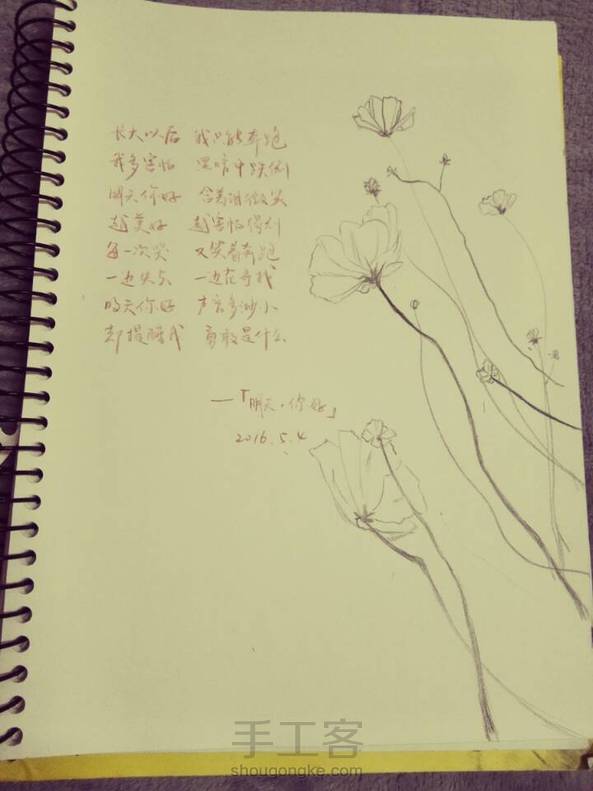 长大以后 我只能奔跑
我多害怕 黑暗中跌倒
明天你好 含着泪微笑
越美好 越害怕得到
每一次哭 又笑着奔跑
一边失去 一边在寻找
明天你好 声音多渺小
却提醒我 勇敢是什么
—「明天,你好」
2016.5.4
手工客
shougongke.com